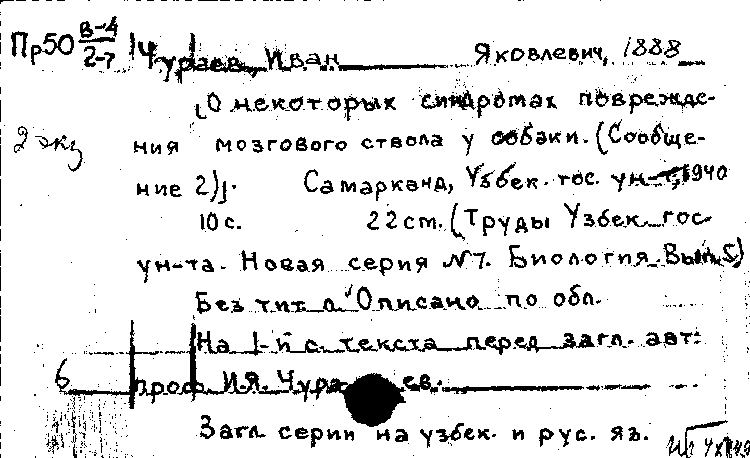 Пр50 В-4/2-7 Чураев, Иван Яковлевич, 1888
[О некоторых синдромах поврежде-
2 экз ния мозгового ствола у собаки. (Сообще-
ние 2)]. Самарканд, Узбек. гос. ун-т, 1940
10 с. 22 cm. (Труды Узбек. гос
ун-та. Новая серия №7. Биология. Вып. 5)
Без тит. л. Описано по обл.
На 1-й с. текста перед загл. авт:
6 проф. И.Я. Чураев.
Загл. серии на узбек. и рус. яз.